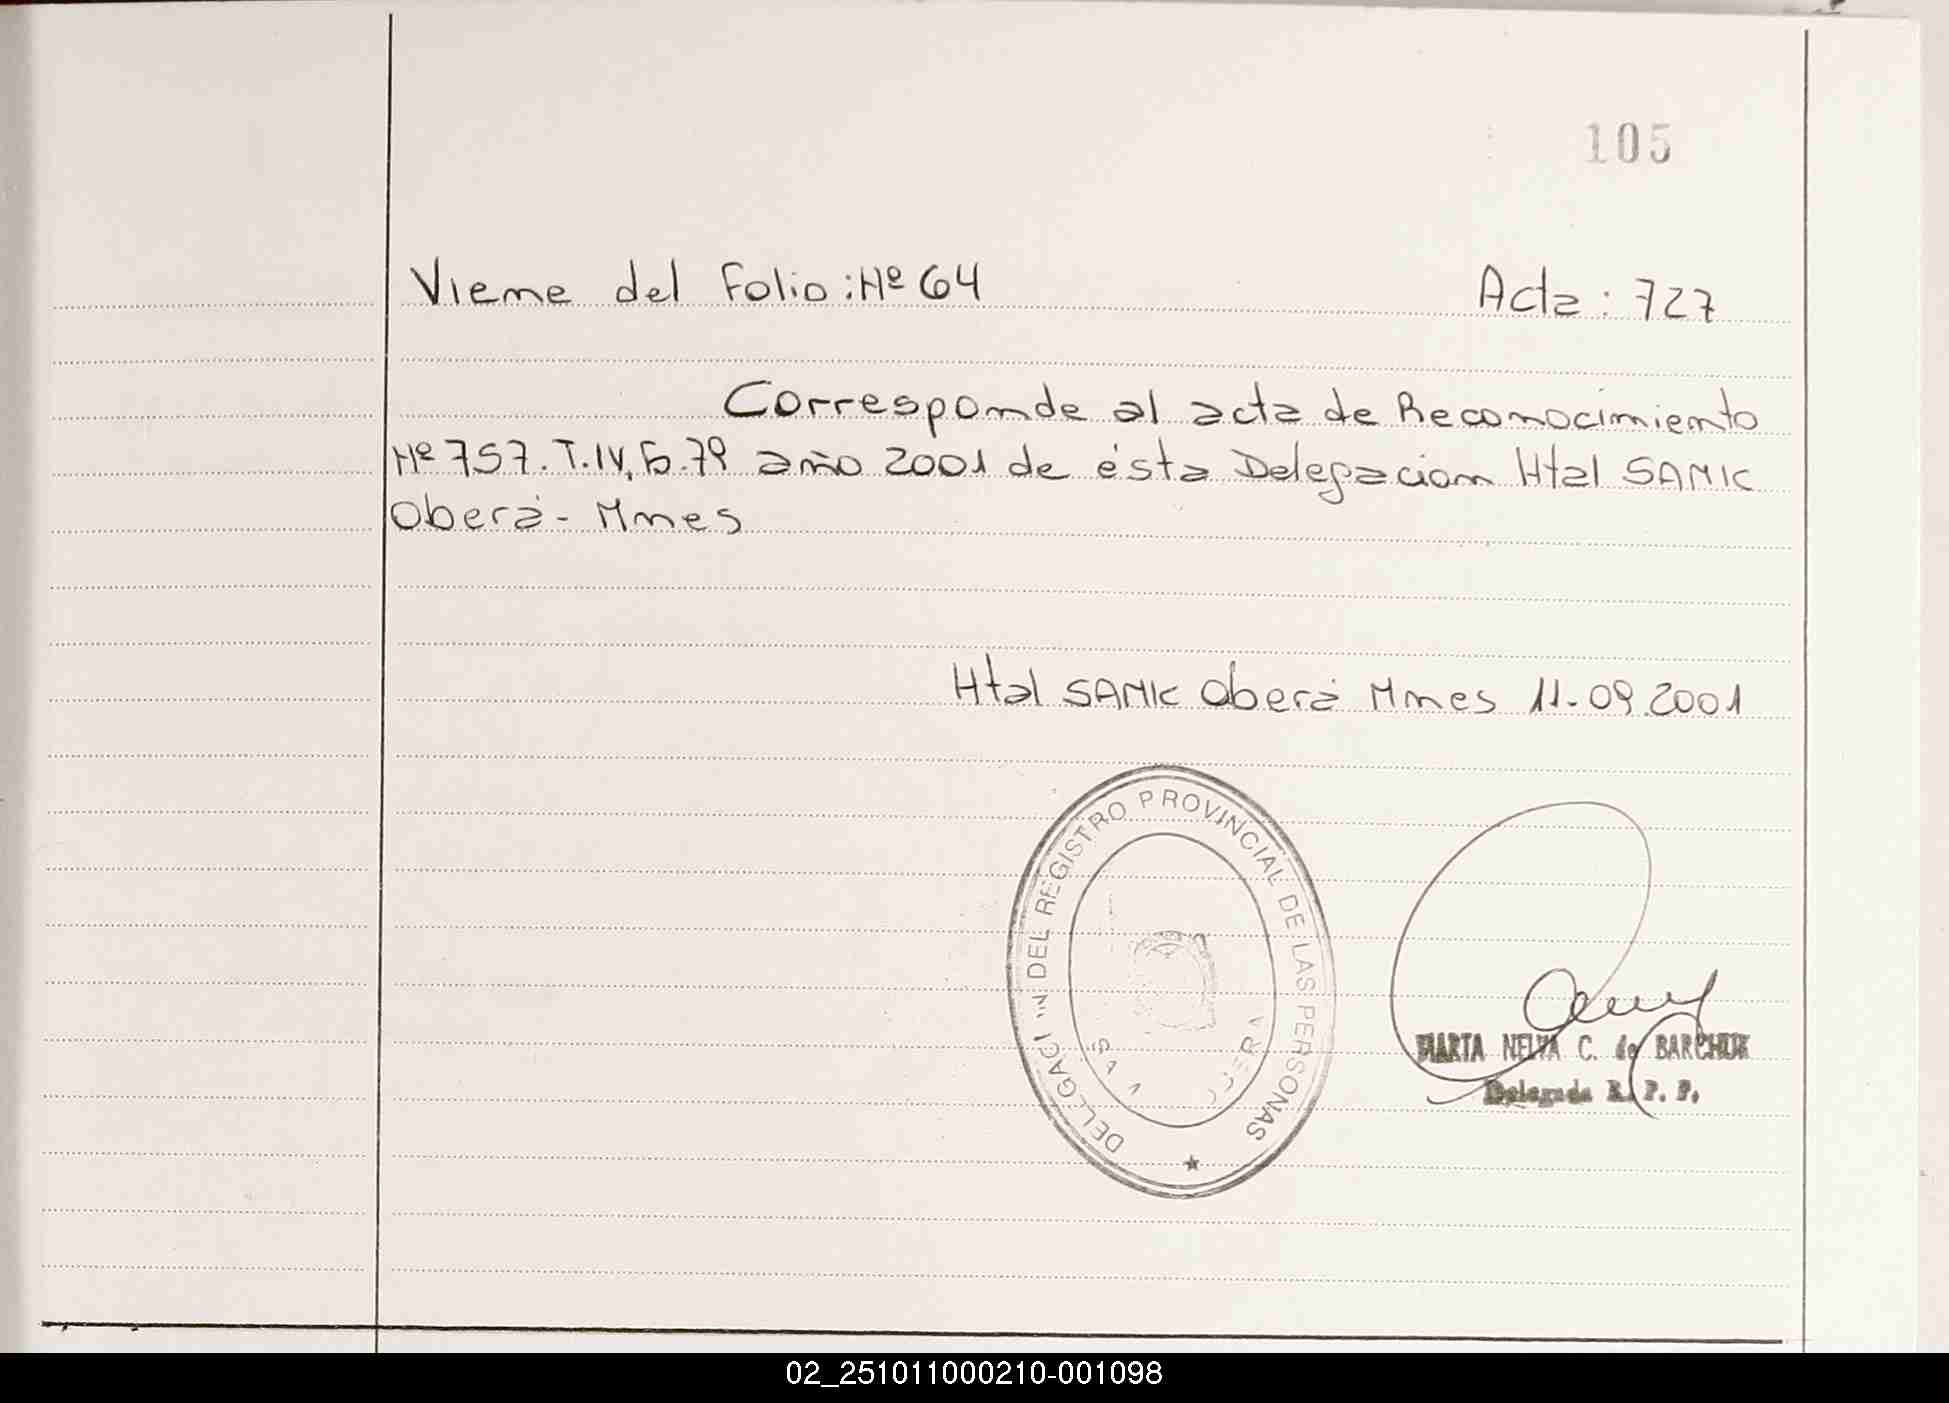 105
Viene del Folio: Nº 64 Acta: 727
Corresponde al acta de Reconocimiento
Nº 757. T. IV, Fº. 79 año 2001 de ésta Delegacion Htal SAMIC
Oberá - Mnes
Htal SAMIC Oberá Mnes 11-09.2001
DELEGACIÓN DEL REGISTRO PROVINCIAL DE LAS PERSONAS
MARTA NELVA C. de BARCHUK
Delegada R. P. P.
02_251011000210-001098